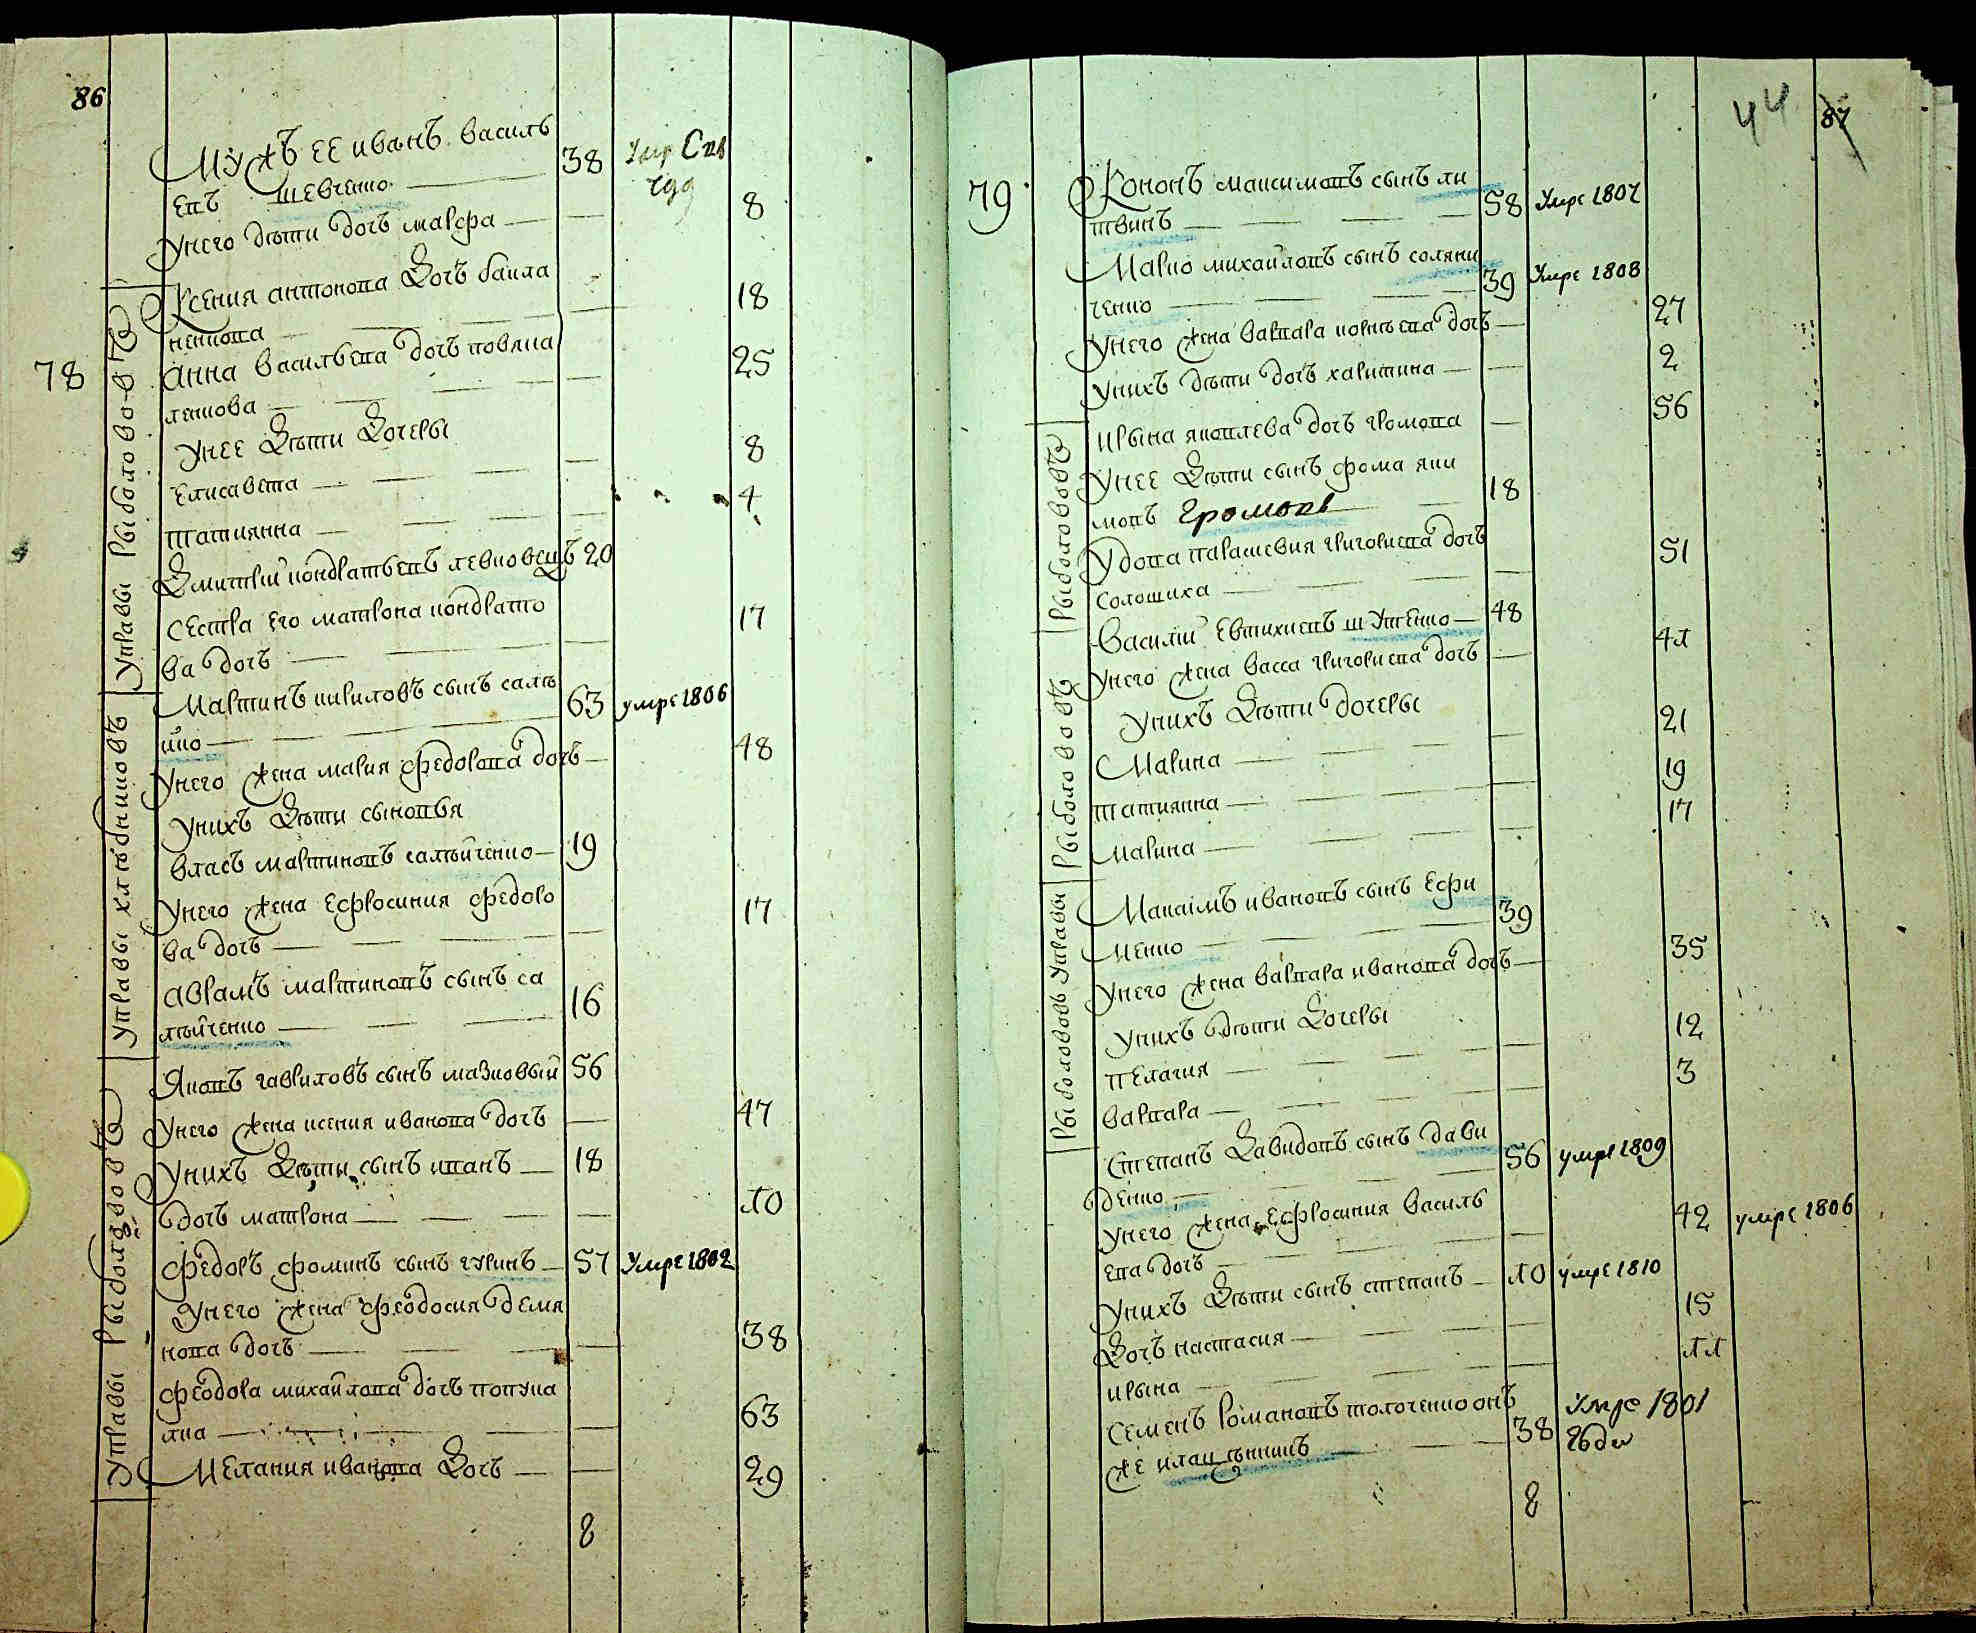 86
Мужъ ее иванъ василь
евъ шевченко 38 умре
году
у него дѣти дочь марфа 8
Ксения антонова дочь баила
ненкова 18
78
Анна васильева дочь ковяла
ленкова 25
у нее дѣти дочеры
Елисавета 8
татиянна 4
Дмитрiй кондратьевъ левковецъ 20
сестра его матрона кондрато
ва дочь 17
Мартинъ кириловъ сынъ салѣ
йко 63 умре 1806
у него жена мария федорова дочь 48
у нихъ дѣти сыновья
власъ мартиновъ салѣйченко 19
у него жена ефросиния федоро
ва дочь 17
аврамъ мартиновъ сынъ са
лѣйченко 16
Яковъ гавриловъ сынъ мазковый 56
у него жена ксения иванова дочь 47
у нихъ дѣти сынъ иванъ 18
дочь матрона 10
федоръ фоминъ сынъ гуринъ 57 умре 1802
у него жена феодосия демя
нова дочь 38
феодора михайлова дочь попука
лка 63
Мелания иванова дочь 29
8
управы рыболововъ
управы хлѣбниковъ
управы рыболововъ
44 87
79
Кононъ максимовъ сынъ ли
твинъ 58 умре 1807
Марко михайловъ сынъ соляни
ченко 39 умре 1808
у него жена варвара корнѣева дочь 27
у нихъ дѣти дочь харитина 2
ирына яковлева дочь громова 56
у нее дѣти сынъ фома яки
мовъ громовъ 18
удова параскевия григориева дочь
солошиха 51
Василiй евтихиевъ шутенко 48
у него жена васса григориева дочь 41
у нихъ дѣти дочеры
Марина 21
татиянна 19
марина 17
Макаiмъ ивановъ сынъ ефи
менко 39
у него жена варвара иванова дочь 35
у нихъ дѣти дочеры
пелагия 12
варвара 3
Степанъ давидовъ сынъ дави
денко 56 умре 1809
у него жена ефросиния василь
ева дочь 42 умре 1806
у нихъ дѣти сынъ степанъ 10 умре 1810
дочь настасия 15
ирына 11
семенъ романовъ толоченко онъ
же 38 умре 1801
году
8
рыболововъ
рыболововъ
рыболововъ управы